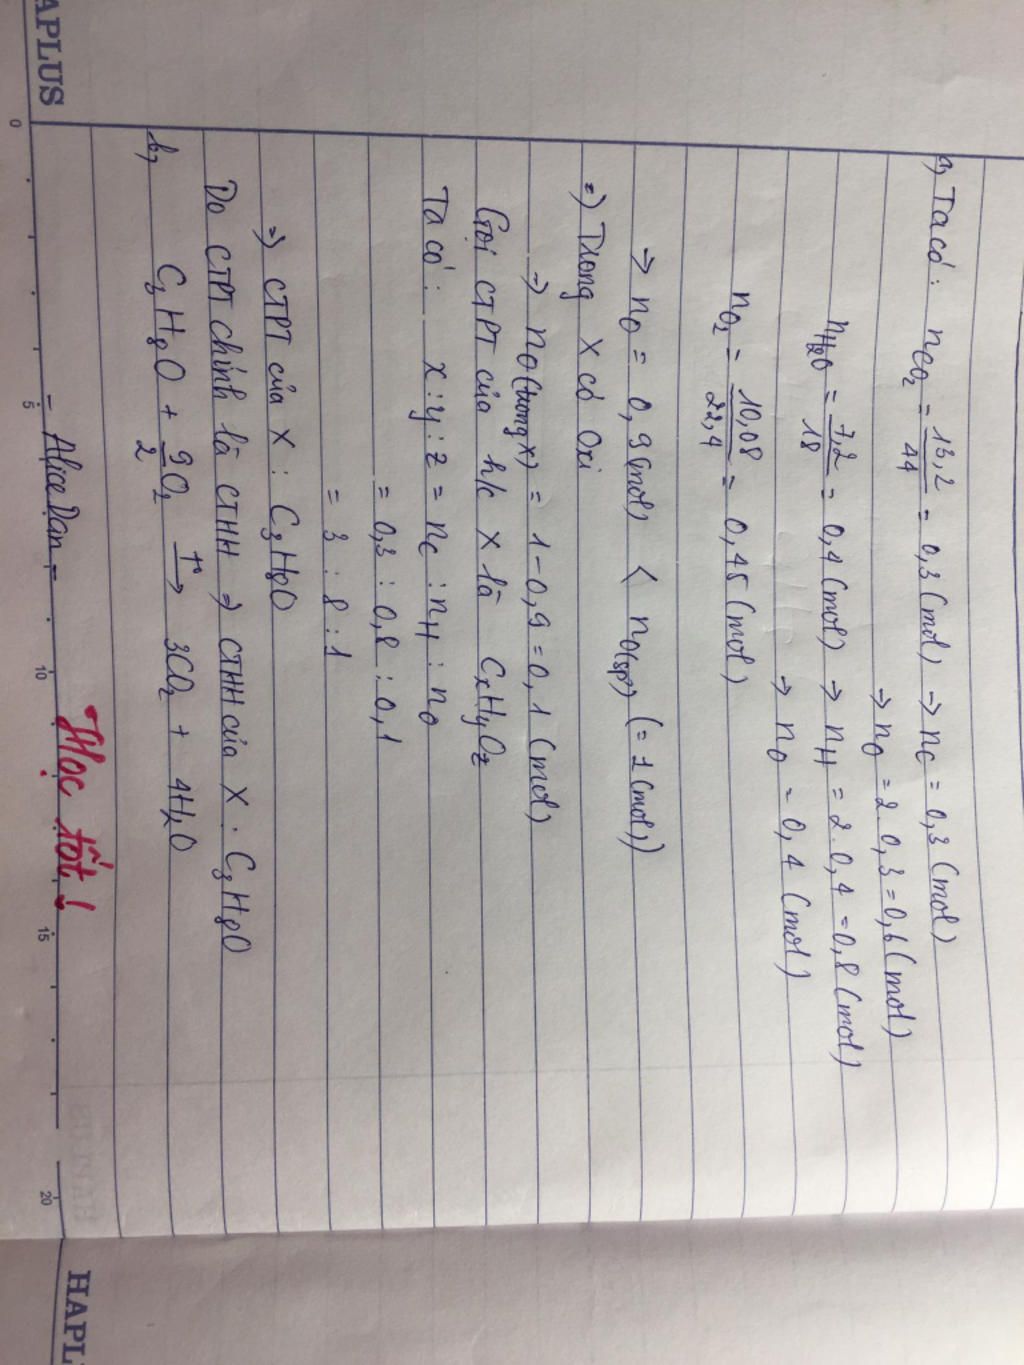 a, Ta có: nCO₂ = 13,2/44 = 0,3 (mol) → nC = 0,3 (mol)
→ nO = 2.0,3 = 0,6 (mol)
nH₂O = 7,2/18 = 0,4 (mol) → nH = 2.0,4 = 0,8 (mol)
→ nO = 0,4 (mol)
nO₂ = 10,08/22,4 = 0,45 (mol)
→ nO = 0,9 (mol) < nO(sp) (= 1 (mol))
=) Trong X có Oxi
→ nO (trong X) = 1 - 0,9 = 0,1 (mol)
Gọi CTPT của h/c X là CxHyOz
Ta có: x : y : z = nC : nH : nO
= 0,3 : 0,8 : 0,1
= 3 : 8 : 1
=) CTPT của X : C₃H₈O
Do CTPT chính là CTHH => CTHH của X : C₃H₈O
b, C₃H₈O + 9/2 O₂ –t°→ 3CO₂ + 4H₂O
Học tốt !
– Alice Dan –
APLUS
HAPL
0 5 10 15 20